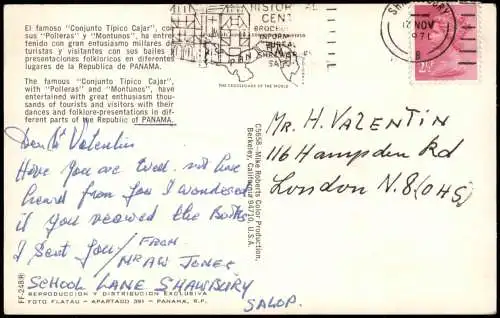 El famoso "Conjunto Típico Cajar", con
sus "Polleras" y "Montunos", ha entre-
tenido con gran entusiasmo millares de
turistas y visitantes con sus bailes y
presentaciones folklóricos en diferentes
lugares de la Republica de PANAMA.
The famous "Conjunto Típico Cajar",
with "Polleras" and "Montunos", have
entertained with great enthusiasm thou-
sands of tourists and visitors with their
dances and folklore-presentations in dif-
ferent parts of the Republic of PANAMA.
Dear Mr Valentin
Hope you are well not have
heard from you I wondered
if you received the Books
I sent you / FROM
MR A W JONES
SCHOOL LANE SHAWBURY
SALOP.
FF-248R
REPRODUCCION Y DISTRIBUCION EXCLUSIVA
FOTO FLATAU - APARTADO 391 - PANAMA, R.P.
C5658-Mike Roberts Color Production,
Berkeley, California 94710, U.S.A.
THE CROSSROADS OF THE WORLD
CENT
BROCH
INFORM
BUREAU
SHREWSB
SALO
12 NOV
1971
2½
Mr. H. VALENTIN
116 Hampden Rd
London N.8 (OHS)